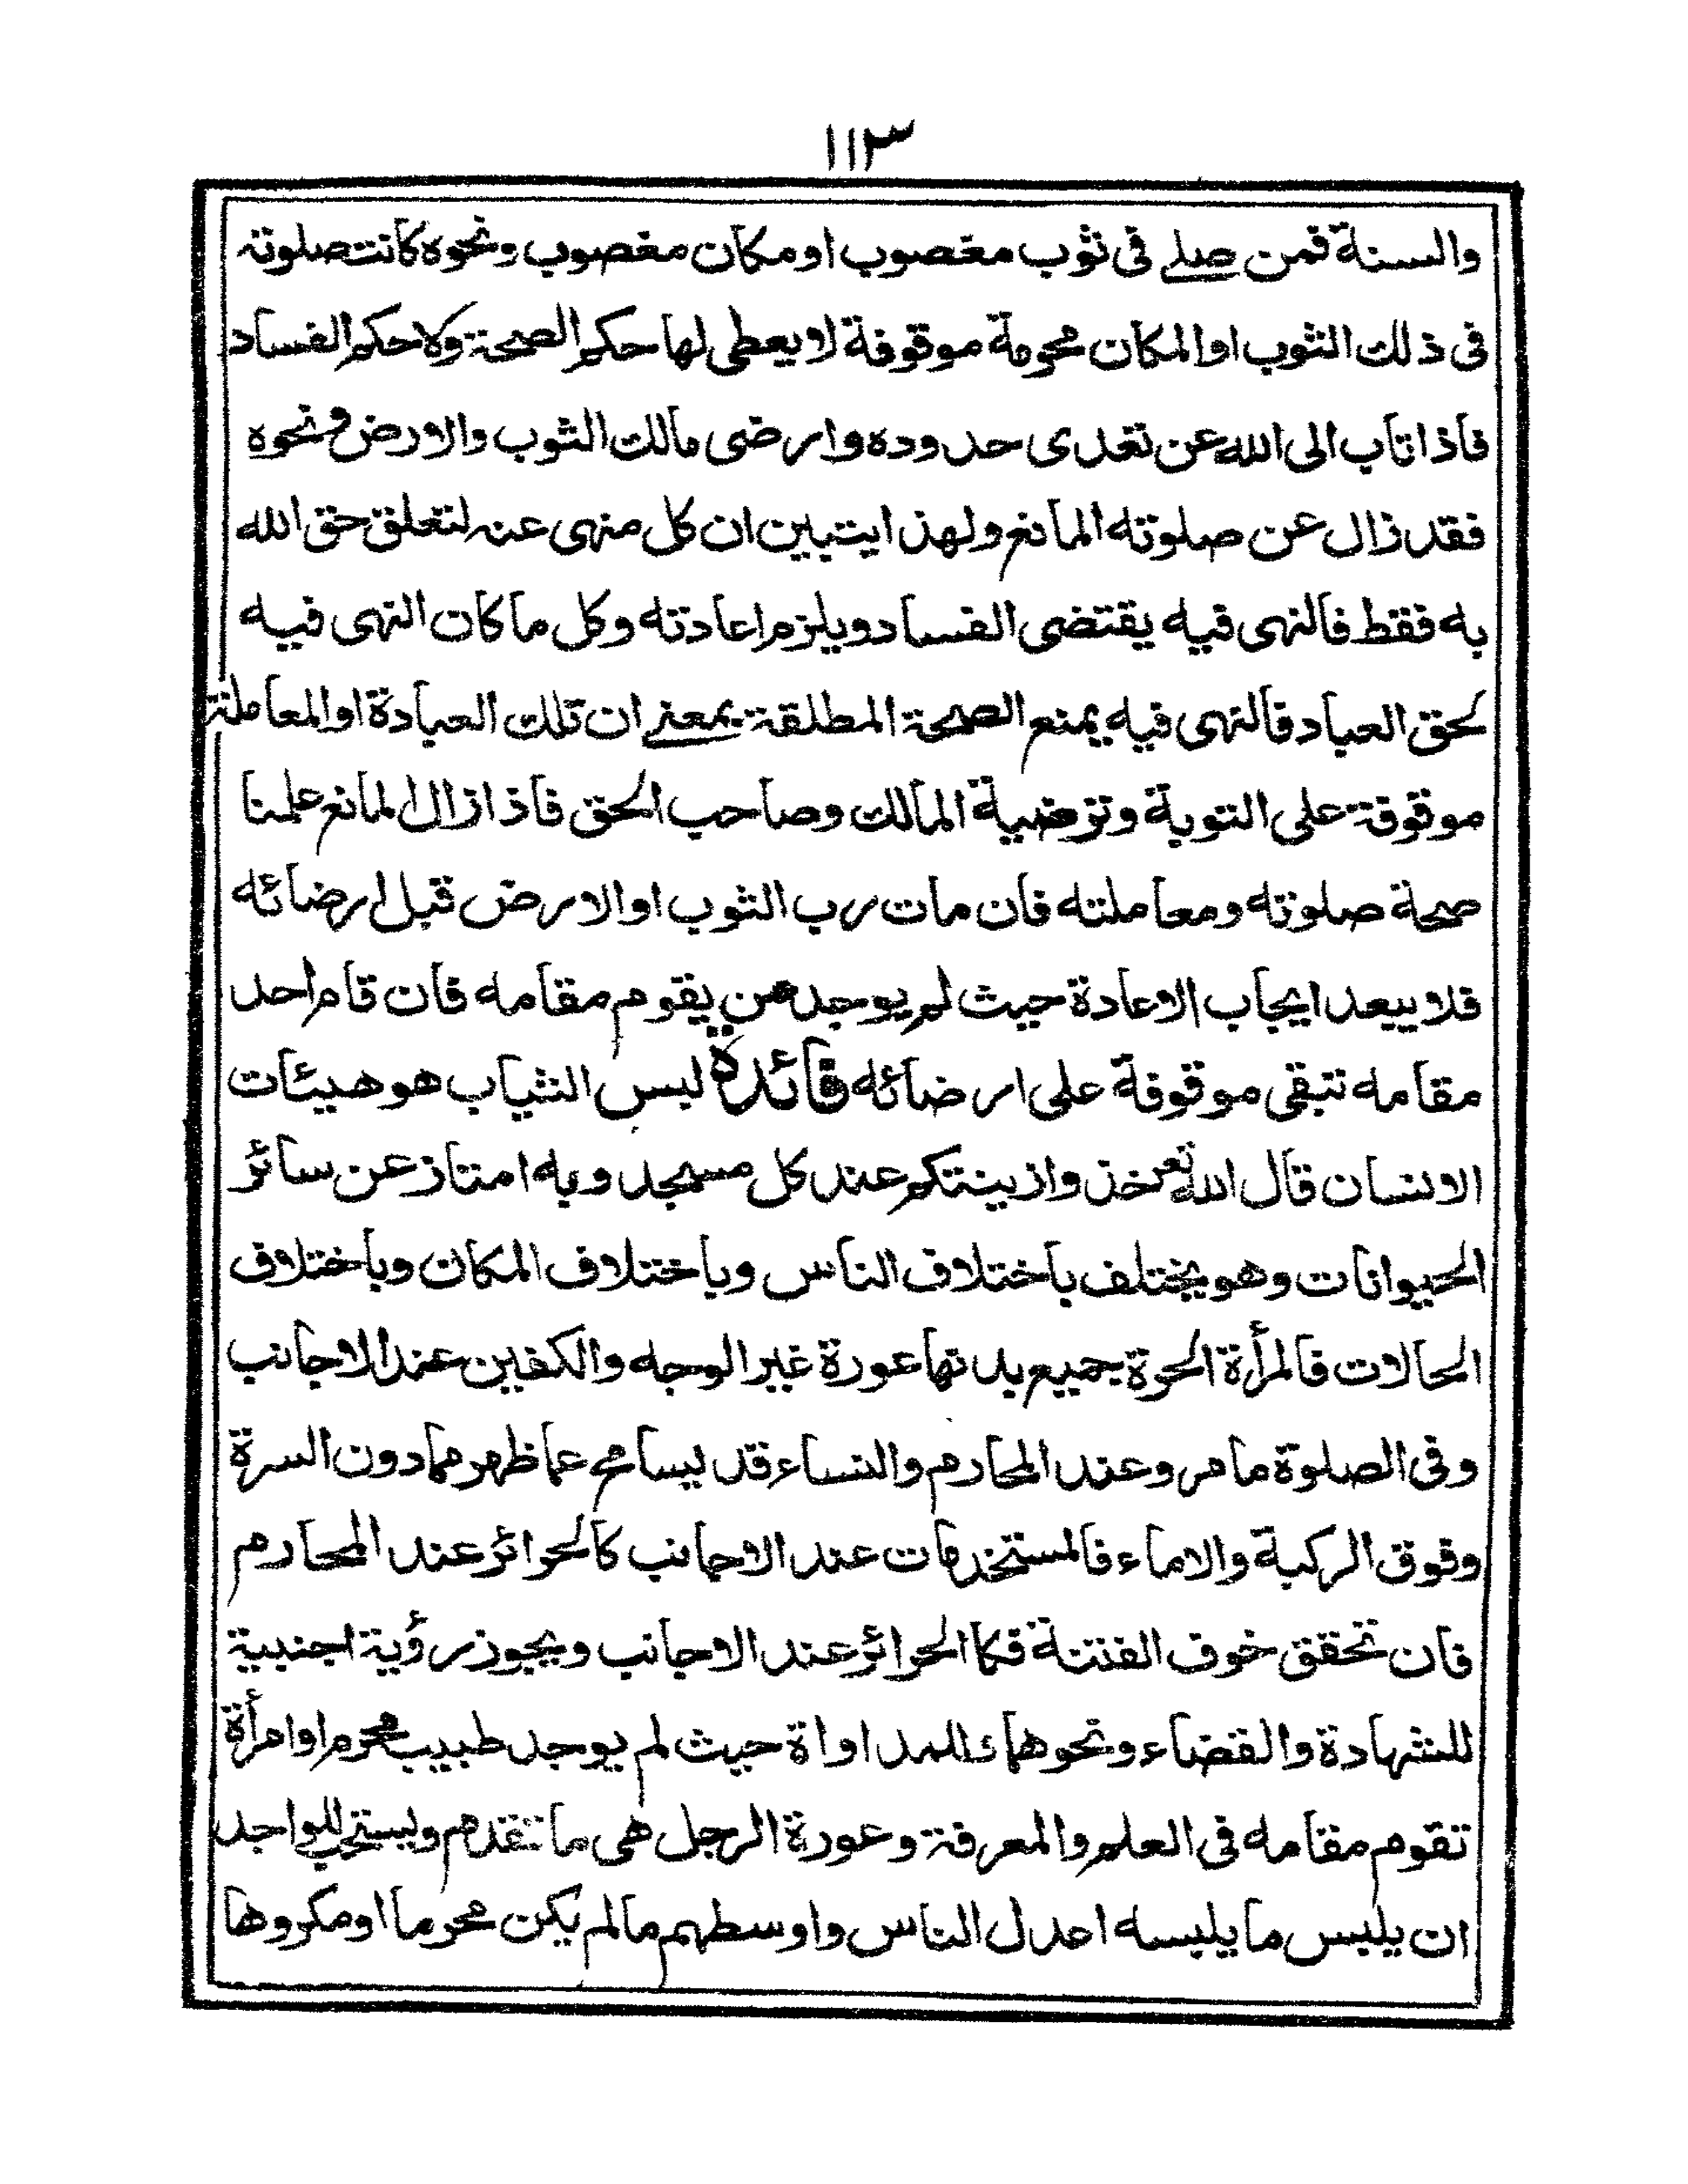 ١١٣
والسنة فمن صلے فى ثوب مغصوب او مكان مغصوب ونحوه كانت صلوته
فى ذلك الثوب او المكان محرمة موقوفة لا يعطى لها حكم الصحة ولا حكم الفساد
فاذا تاب الى الله عن تعدى حدوده وارضى مالك الثوب والارض ونحوه
فقد زال عن صلوته المانع ولهذا يتبين ان كل منهى عنه لتعلق حق الله
به فقط فالنهى فيه يقتضى الفساد ويلزم اعادته وكل ما كان النهى فيه
لحق العباد فالنهى فيه يمنع الصحة المطلقة بمعنے ان تلك العبادة او المعاملة
موقوفة على التوبة وترضية المالك وصاحب الحق فاذا زال المانع علمنا
صحة صلوته ومعاملته فان مات رب الثوب او الارض قبل ارضائه
فلا يبعد ايجاب الاعادة حيث لم يوجد من يقوم مقامه فان قام احد
مقامه تبقى موقوفة على ارضائه فائدة لبس الثياب هو هيئات
الانسان قال الله تع خذوا زينتكم عند كل مسجد وبه امتاز عن سائر
الحيوانات وهو يختلف باختلاف الناس وباختلاف المكان وباختلاف
الحالات فالمرأة الحرة جميع بدنها عورة غير الوجه والكفين عند الاجانب
وفى الصلوة ما مر وعند المحارم والنساء قد يسامح عما ظهر مما دون السرة
وفوق الركبة والاماء فالمستخدمات عند الاجانب كالحرائر عند المحارم
فان تحقق خوف الفتنة فكالحرائر عند الاجانب ويجوز رؤية اجنبية
للشهادة والقضاء ونحوهما وللمداواة حيث لم يوجد طبيب محرم او امرأة
تقوم مقامه فى العلم والمعرفة وعورة الرجل هى ما تقدم ويستحب للواجد
ان يلبس ما يلبسه اعدل الناس واوسطهم مالم يكن محرما او مكروها